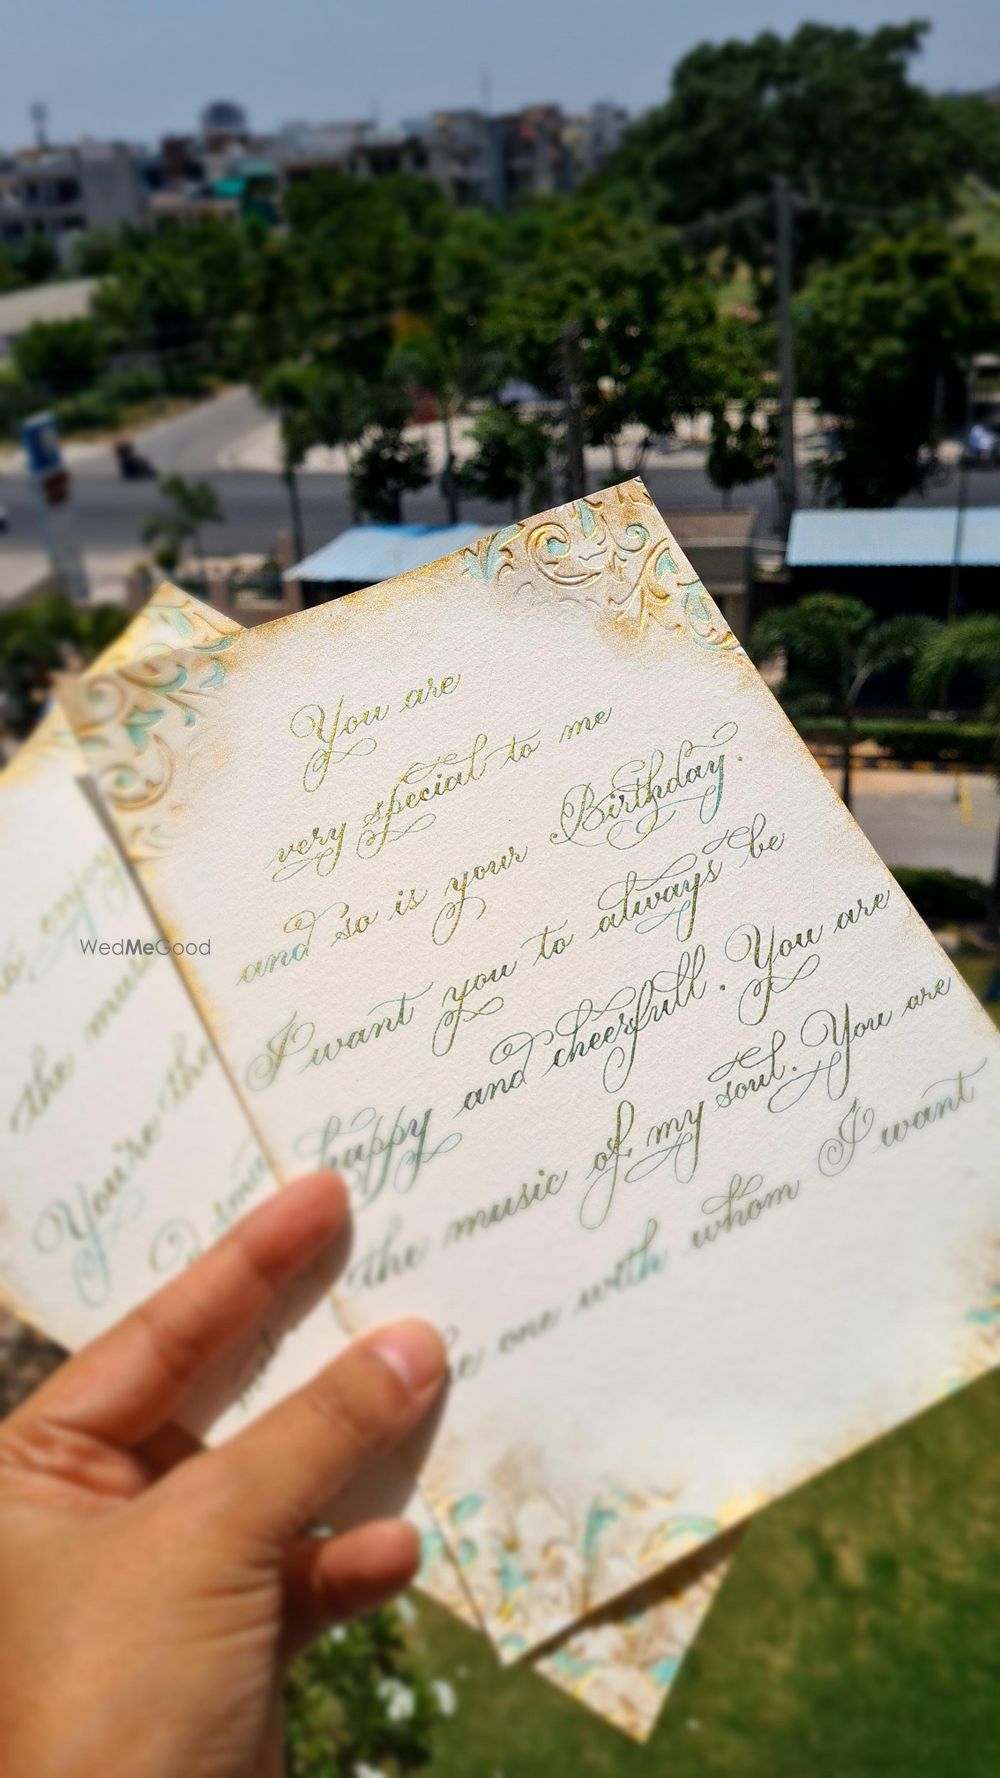 You are
very special to me
and so is your Birthday.
I want you to always be
happy and cheerfull. You are
the music of my soul. You are
one with whom I want
enjoy
the
You're the
WedMeGood